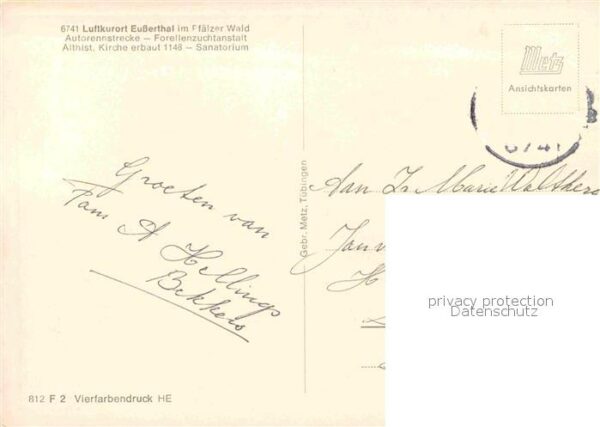 6741 Luftkurort Eußerthal im Pfälzer Wald
Autorennstrecke – Forellenzuchtanstalt
Althist. Kirche erbaut 1146 – Sanatorium
Metz
Ansichtskarten
6741
Groeten van
Fam A Hellings
Bekkers
Gebr. Metz, Tübingen
Aan Zr Marie Walthera
Jan v
H
privacy protection
Datenschutz
812 F 2 Vierfarbendruck HE